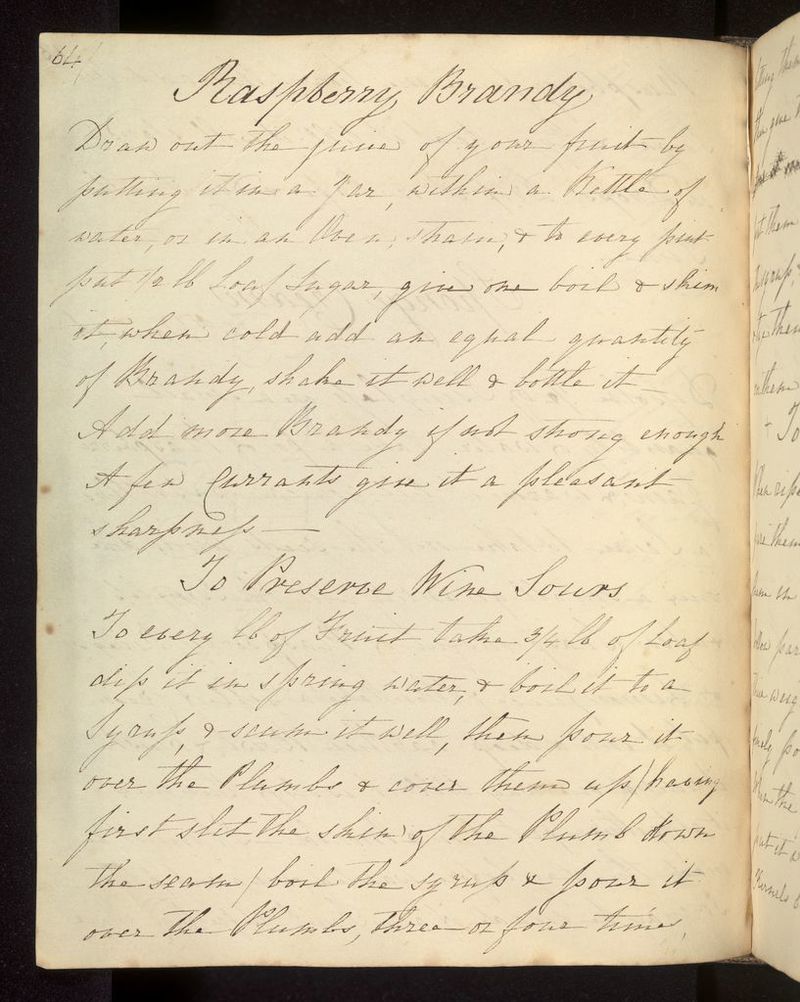 64
Raspberry Brandy
Draw out the juice of your fruit by
putting it in a Jar, within a Kettle of
water, or in an Oven, strain, & to every pint
put 1/2 lb Loaf Sugar, give one boil & skim
it, when cold add an equal quantity
of Brandy, shake it well & bottle it —
Add more Brandy if not strong enough
A few Currants give it a pleasant
sharpness —
To Preserve Wine Sours
To every lb of Fruit take 3/4 lb of Loaf
dip it in spring water, & boil it to a
Syrup, & scum it well, then pour it
over the Plumbs & cover them up / having
first slit the skin of the Plumb down
the seam / boil the syrup & pour it
over the Plumbs, three or four times,